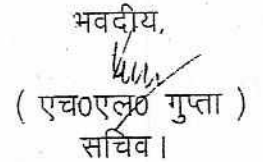 भवदीय,
( एच0एल0 गुप्ता )
सचिव।